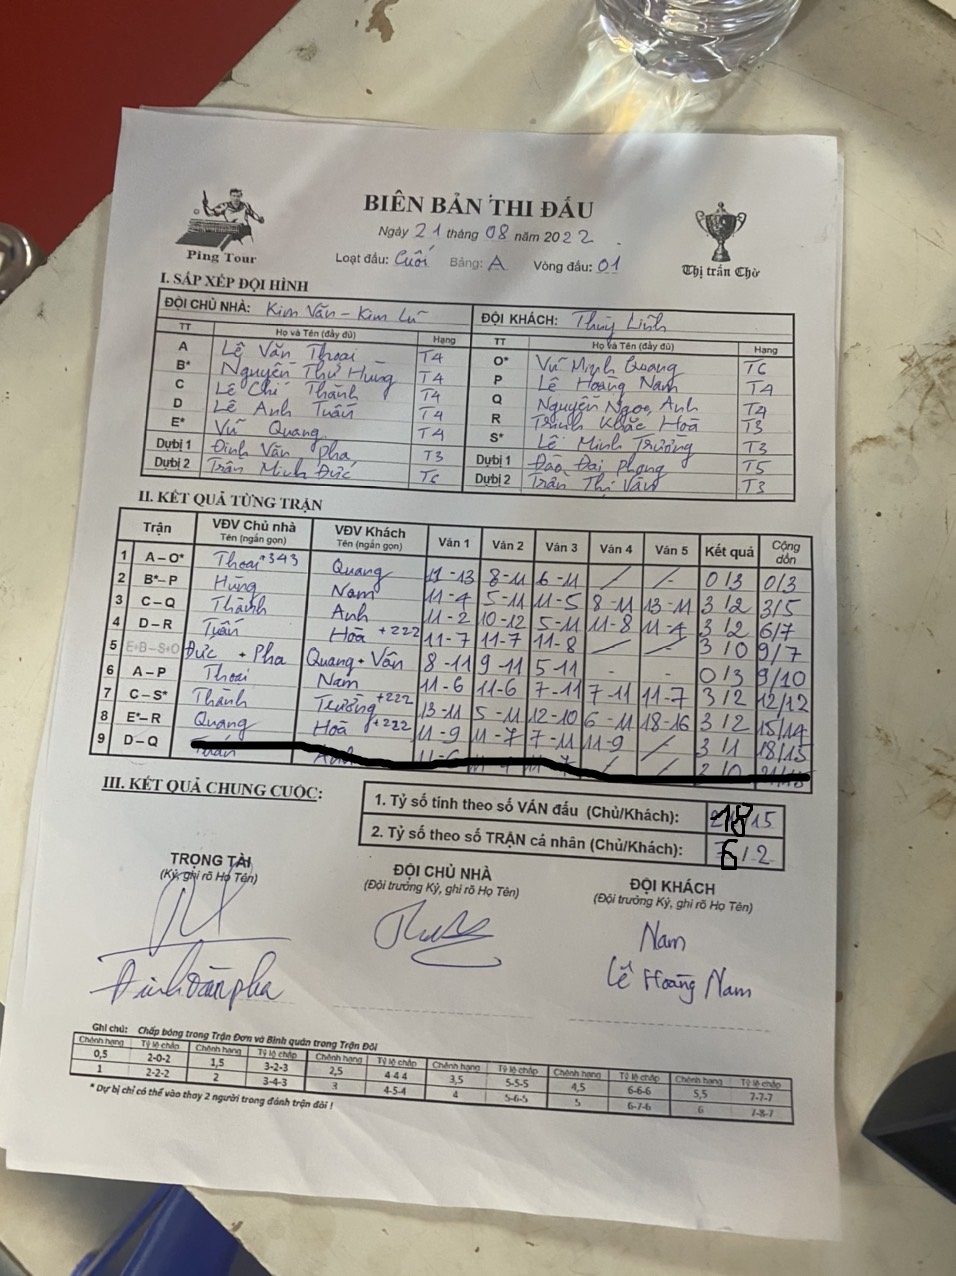 BIÊN BẢN THI ĐẤU
Ping Tour
Ngày 21 tháng 08 năm 2022
Thị trấn Chờ
Loạt đấu: Cuối Bảng: A Vòng đấu: 01
I. SẮP XẾP ĐỘI HÌNH
ĐỘI CHỦ NHÀ: Kim Văn - Kim Lũ ĐỘI KHÁCH: Thùy Linh
TT Họ và Tên (đầy đủ) Hạng TT Họ và Tên (đầy đủ) Hạng
A Lê Văn Thoai T4 O* Vũ Minh Quang T6
B* Nguyễn Thư Hùng T4 P Lê Hoàng Nam T4
C Lê Chí Thành T4 Q Nguyễn Ngọc Anh T4
D Lê Anh Tuấn T4 R Trịnh Khắc Hoà T3
E* Vũ Quang T4 S* Lê Minh Trường T3
Dự bị 1 Đinh Văn Pha T3 Dự bị 1 Đào Đại Phong T5
Dự bị 2 Trần Minh Đức T6 Dự bị 2 Trần Thị Vân T3
II. KẾT QUẢ TỪNG TRẬN
Trận VĐV Chủ nhà Tên (ngắn gọn) VĐV Khách Tên (ngắn gọn) Ván 1 Ván 2 Ván 3 Ván 4 Ván 5 Kết quả Cộng dồn
1 A – O* Thoai +343 Quang 11-13 8-11 6-11 / / 0/3 0/3
2 B* – P Hùng Nam 11-4 5-11 11-5 8-11 13-11 3/2 3/5
3 C – Q Thành Anh 11-2 10-12 5-11 11-8 11-4 3/2 6/7
4 D – R Tuấn Hoà +222 11-7 11-7 11-8 / / 3/0 9/7
5 E+B – S+O Đức + Pha Quang + Vân 8-11 9-11 5-11 - - 0/3 9/10
6 A – P Thoai Nam 11-6 11-6 7-11 7-11 11-7 3/2 12/12
7 C – S* Thành Trường +222 13-11 5-11 12-10 6-11 18-16 3/2 15/14
8 E* – R Quang Hoà +222 11-9 11-7 7-11 11-9 / 3/1 18/15
9 D – Q Tuấn Anh 11-6
III. KẾT QUẢ CHUNG CUỘC:
1. Tỷ số tính theo số VÁN đấu (Chủ/Khách): 18/15
2. Tỷ số theo số TRẬN cá nhân (Chủ/Khách): 6/2
TRỌNG TÀI ĐỘI CHỦ NHÀ ĐỘI KHÁCH
(Ký, ghi rõ Họ Tên) (Đội trưởng Ký, ghi rõ Họ Tên) (Đội trưởng Ký, ghi rõ Họ Tên)
Nam
Đinh Văn pha Lê Hoàng Nam
Ghi chú: Chấp bóng trong Trận Đơn và Bình quân trong Trận Đôi
Chênh hạng Tỷ lệ chấp Chênh hạng Tỷ lệ chấp Chênh hạng Tỷ lệ chấp Chênh hạng Tỷ lệ chấp Chênh hạng Tỷ lệ chấp Chênh hạng Tỷ lệ chấp
0,5 2-0-2 1,5 3-2-3 2,5 4-4-4 3,5 5-5-5 4,5 6-6-6 5,5 7-7-7
1 2-2-2 2 3-4-3 3 4-5-4 4 5-6-5 5 6-7-6 6 7-8-7
* Dự bị chỉ có thể vào thay 2 người trong đánh trận đôi !